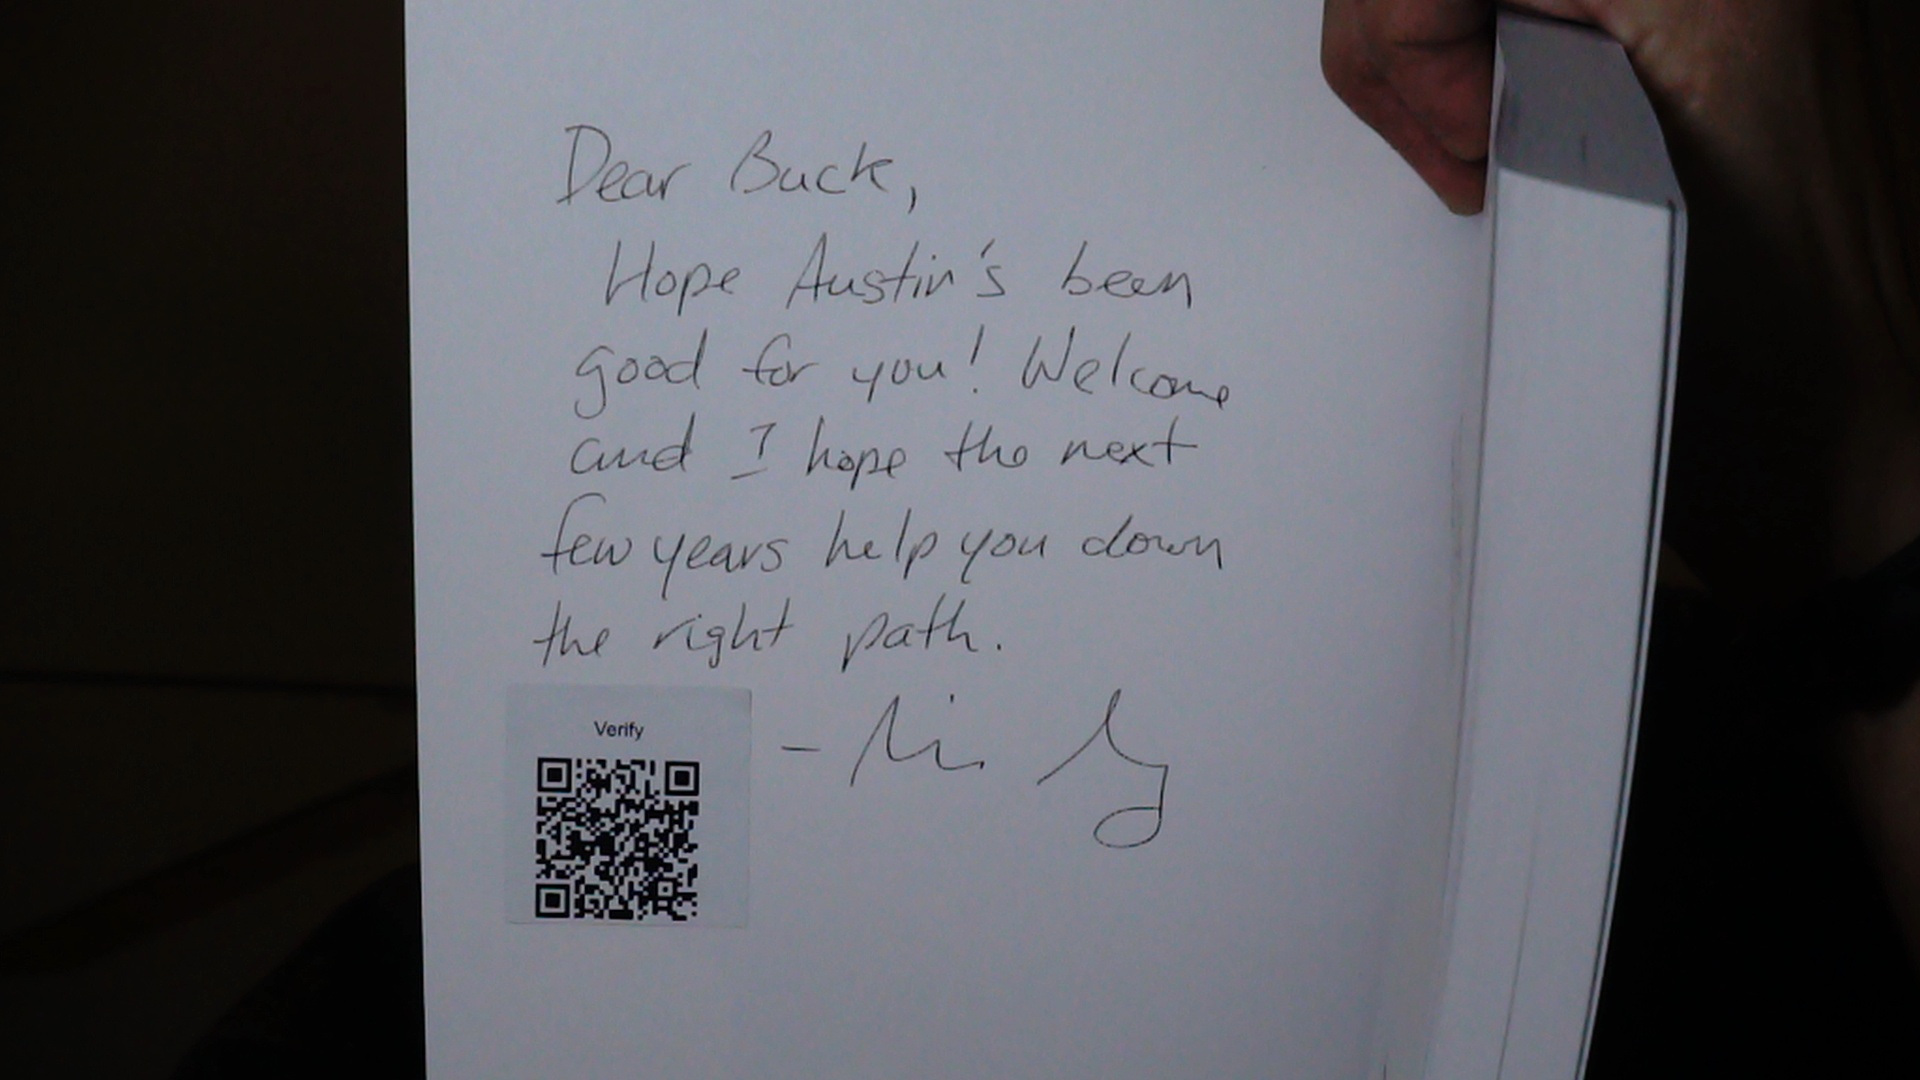 Dear Buck,
Hope Austin's been
good for you! Welcome
and I hope the next
few years help you down
the right path.
Verify